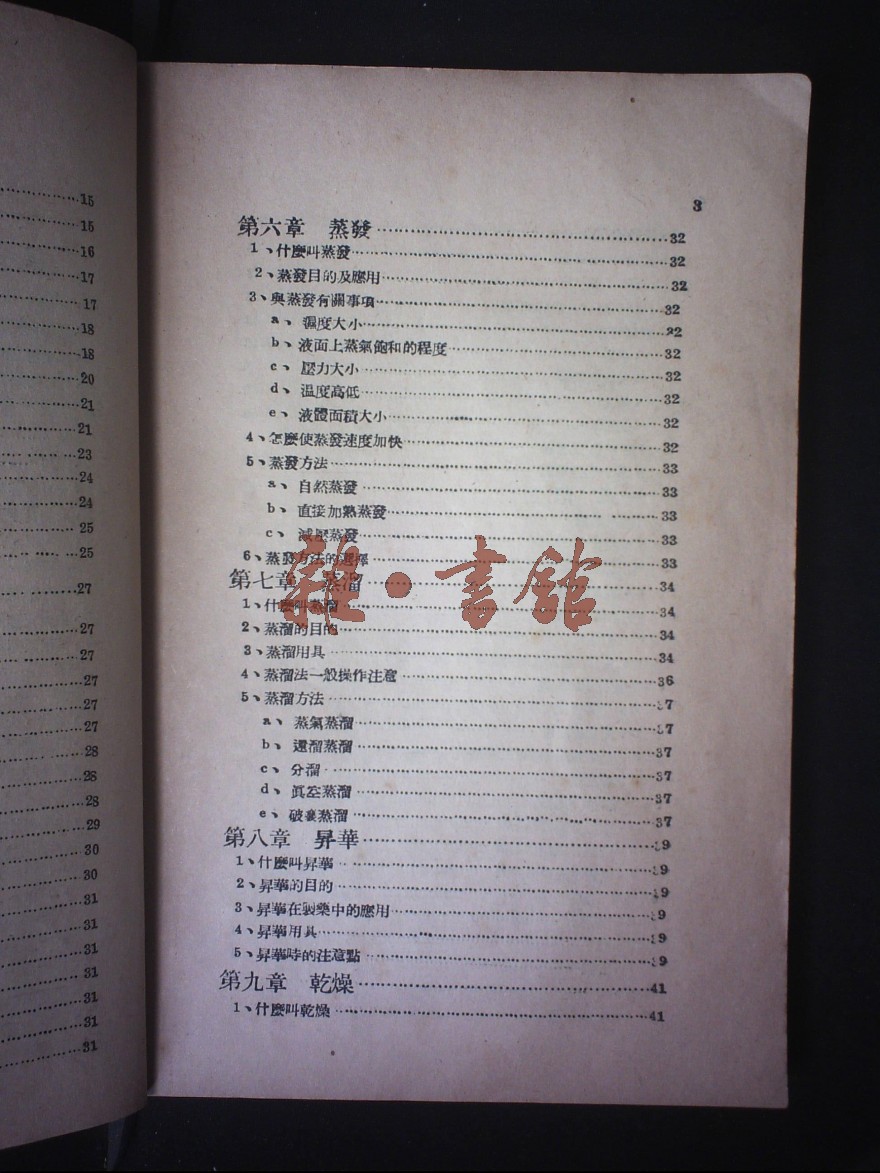 15
15
16
17
17
18
18
20
21
21
23
24
24
25
25
27
27
27
27
27
27
28
28
28
29
30
30
31
31
31
31
31
31
3
第六章 蒸發 32
1、什麼叫蒸發 32
2、蒸發目的及應用 32
3、與蒸發有關事項 32
a、濕度大小 32
b、液面上蒸氣飽和的程度 32
c、壓力大小 32
d、温度高低 32
e、液體面積大小 32
4、怎麼使蒸發速度加快 32
5、蒸發方法 33
a、自然蒸發 33
b、直接加熱蒸發 33
c、減壓蒸發 33
6、蒸發方法的選擇 33
第七章 蒸溜 34
1、什麼叫蒸溜 34
2、蒸溜的目的 34
3、蒸溜用具 34
4、蒸溜法一般操作注意 36
5、蒸溜方法 37
a、蒸氣蒸溜 37
b、還溜蒸溜 37
c、分溜 37
d、眞空蒸溜 37
e、破壞蒸溜 37
第八章 昇華 39
1、什麼叫昇華 39
2、昇華的目的 39
3、昇華在製藥中的應用 39
4、昇華用具 39
5、昇華時的注意點 39
第九章 乾燥 41
1、什麼叫乾燥 41
雜·書館